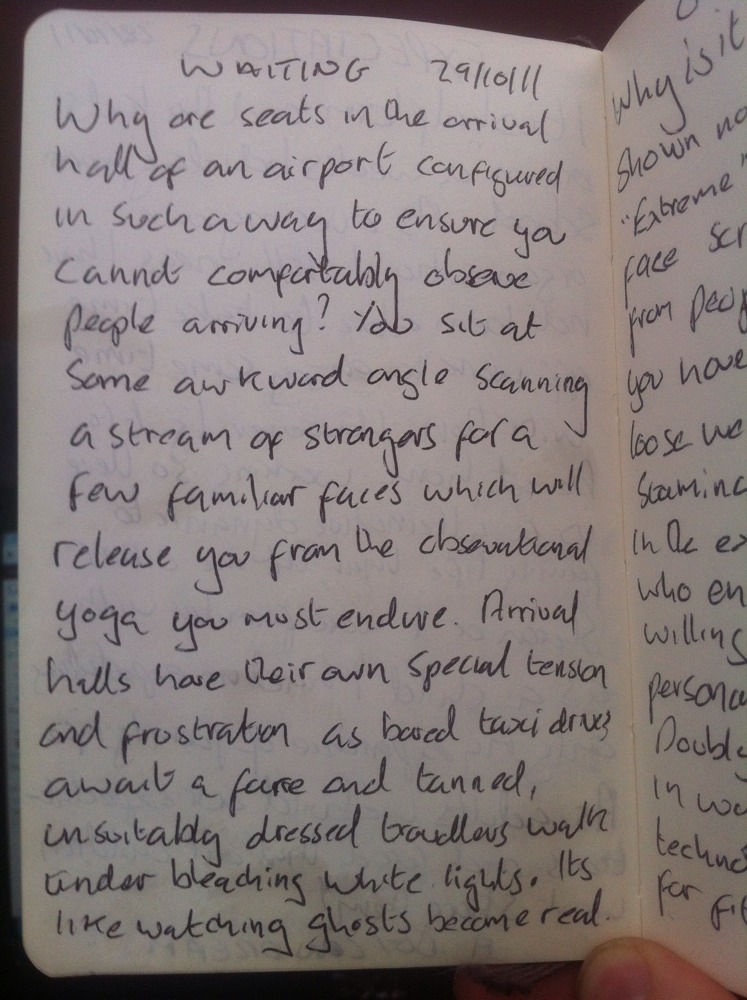 WAITING 29/10/11
Why are seats in the arrival
hall of an airport configured
in such a way to ensure you
cannot comfortably observe
people arriving? You sit at
some awkward angle scanning
a stream of strangers for a
few familiar faces which will
release you from the observational
yoga you must endure. Arrival
halls have their own special tension
and frostration as bored taxi drivers
await a faree and tanned,
unsuitably dressed travellers walk
under bleaching white lights. Its
like watching ghosts become real.
Why is it
shown no
"Extreme"
face scr
from peop
you have
loose we
Staminc
in the ex
who en
willing
persona
Doubly
in wo
techno
for fit